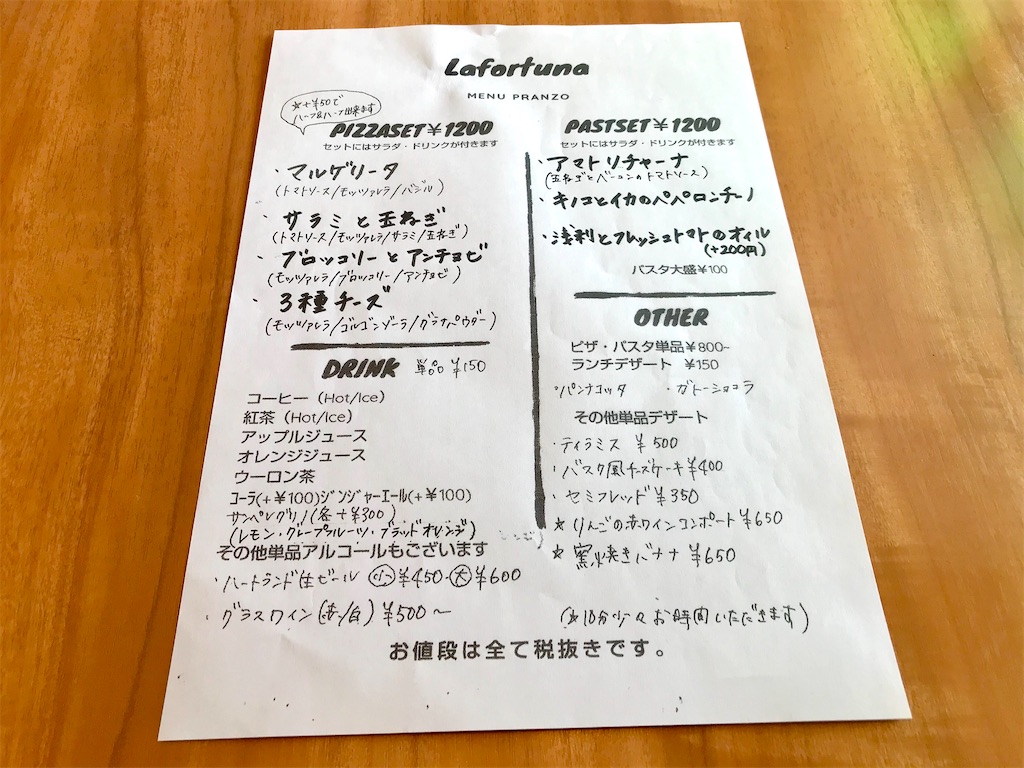 Lafortuna
MENU PRANZO
☆+¥50で
ハーフ&ハーフ出来ます
PIZZASET¥1200
セットにはサラダ・ドリンクが付きます
・マルゲリータ
(トマトソース/モッツァレラ/バジル)
・サラミと玉ねぎ
(トマトソース/モッツァレラ/サラミ/玉ねぎ)
・ブロッコリーとアンチョビ
(モッツァレラ/ブロッコリー/アンチョビ)
・3種チーズ
(モッツァレラ/ゴルゴンゾーラ/グラナパウダー)
DRINK 単品 ¥150
コーヒー(Hot/Ice)
紅茶(Hot/Ice)
アップルジュース
オレンジジュース
ウーロン茶
コーラ(+¥100)ジンジャーエール(+¥100)
サンペレグリノ(各+¥300)
(レモン・グレープフルーツ・ブラッドオレンジ)
その他単品アルコールもございます
・ハートランド生ビール 小¥450・大¥600
・グラスワイン(赤/白)¥500〜
PASTSET¥1200
セットにはサラダ・ドリンクが付きます
・アマトリチャーナ
(玉ねぎとベーコンのトマトソース)
・キノコとイカのペペロンチーノ
・浅利とフレッシュトマトのオイル
(+200円)
パスタ大盛¥100
OTHER
ピザ・パスタ単品¥800~
ランチデザート ¥150
・パンナコッタ ・ガトーショコラ
その他単品デザート
・ティラミス ¥500
・バスク風チーズケーキ¥400
・セミフレッド¥350
☆りんごの赤ワインコンポート¥650
☆窯焼きバナナ ¥650
(☆10分少々お時間いただきます)
お値段は全て税抜きです。